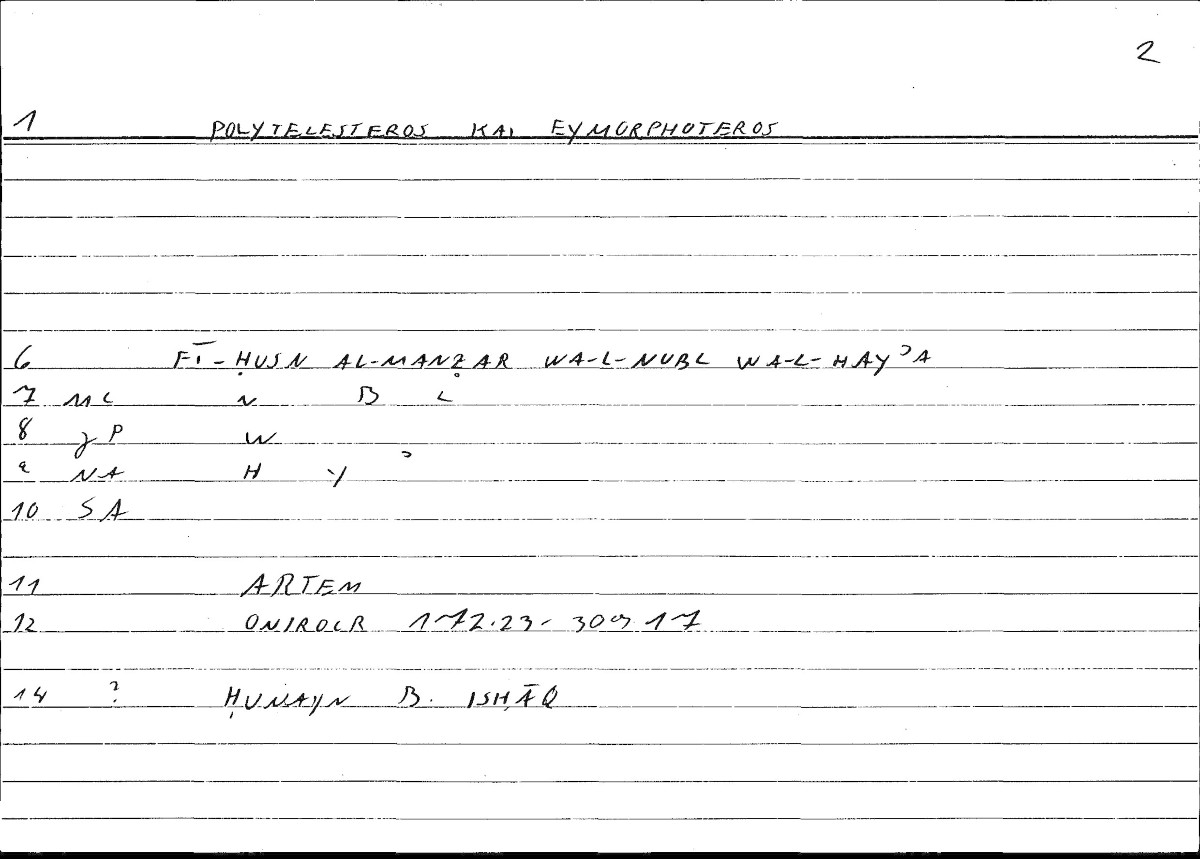 2
1 POLYTELESTEROS KAI EYMORPHOTEROS
6 FĪ-ḤUSN AL-MANẒAR WA-L-NUBL WA-L-HAYʾA
7 ML N B L
8 P W
9 NA H Y ʾ
10 SA
11 ARTEM
12 ONIROCR 172.23- 309 17
14 ? ḤUNAYN B. ISḤĀQ